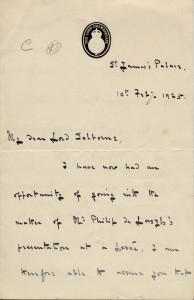 C
St. James's Palace.
10th Feb/y 1925
My dear Lord Saltoun,
I have now had an
opportunity of going into the
matter of Mr Philip de Laszlo's
presentation at a Levée. I am
therefore able to assure you that